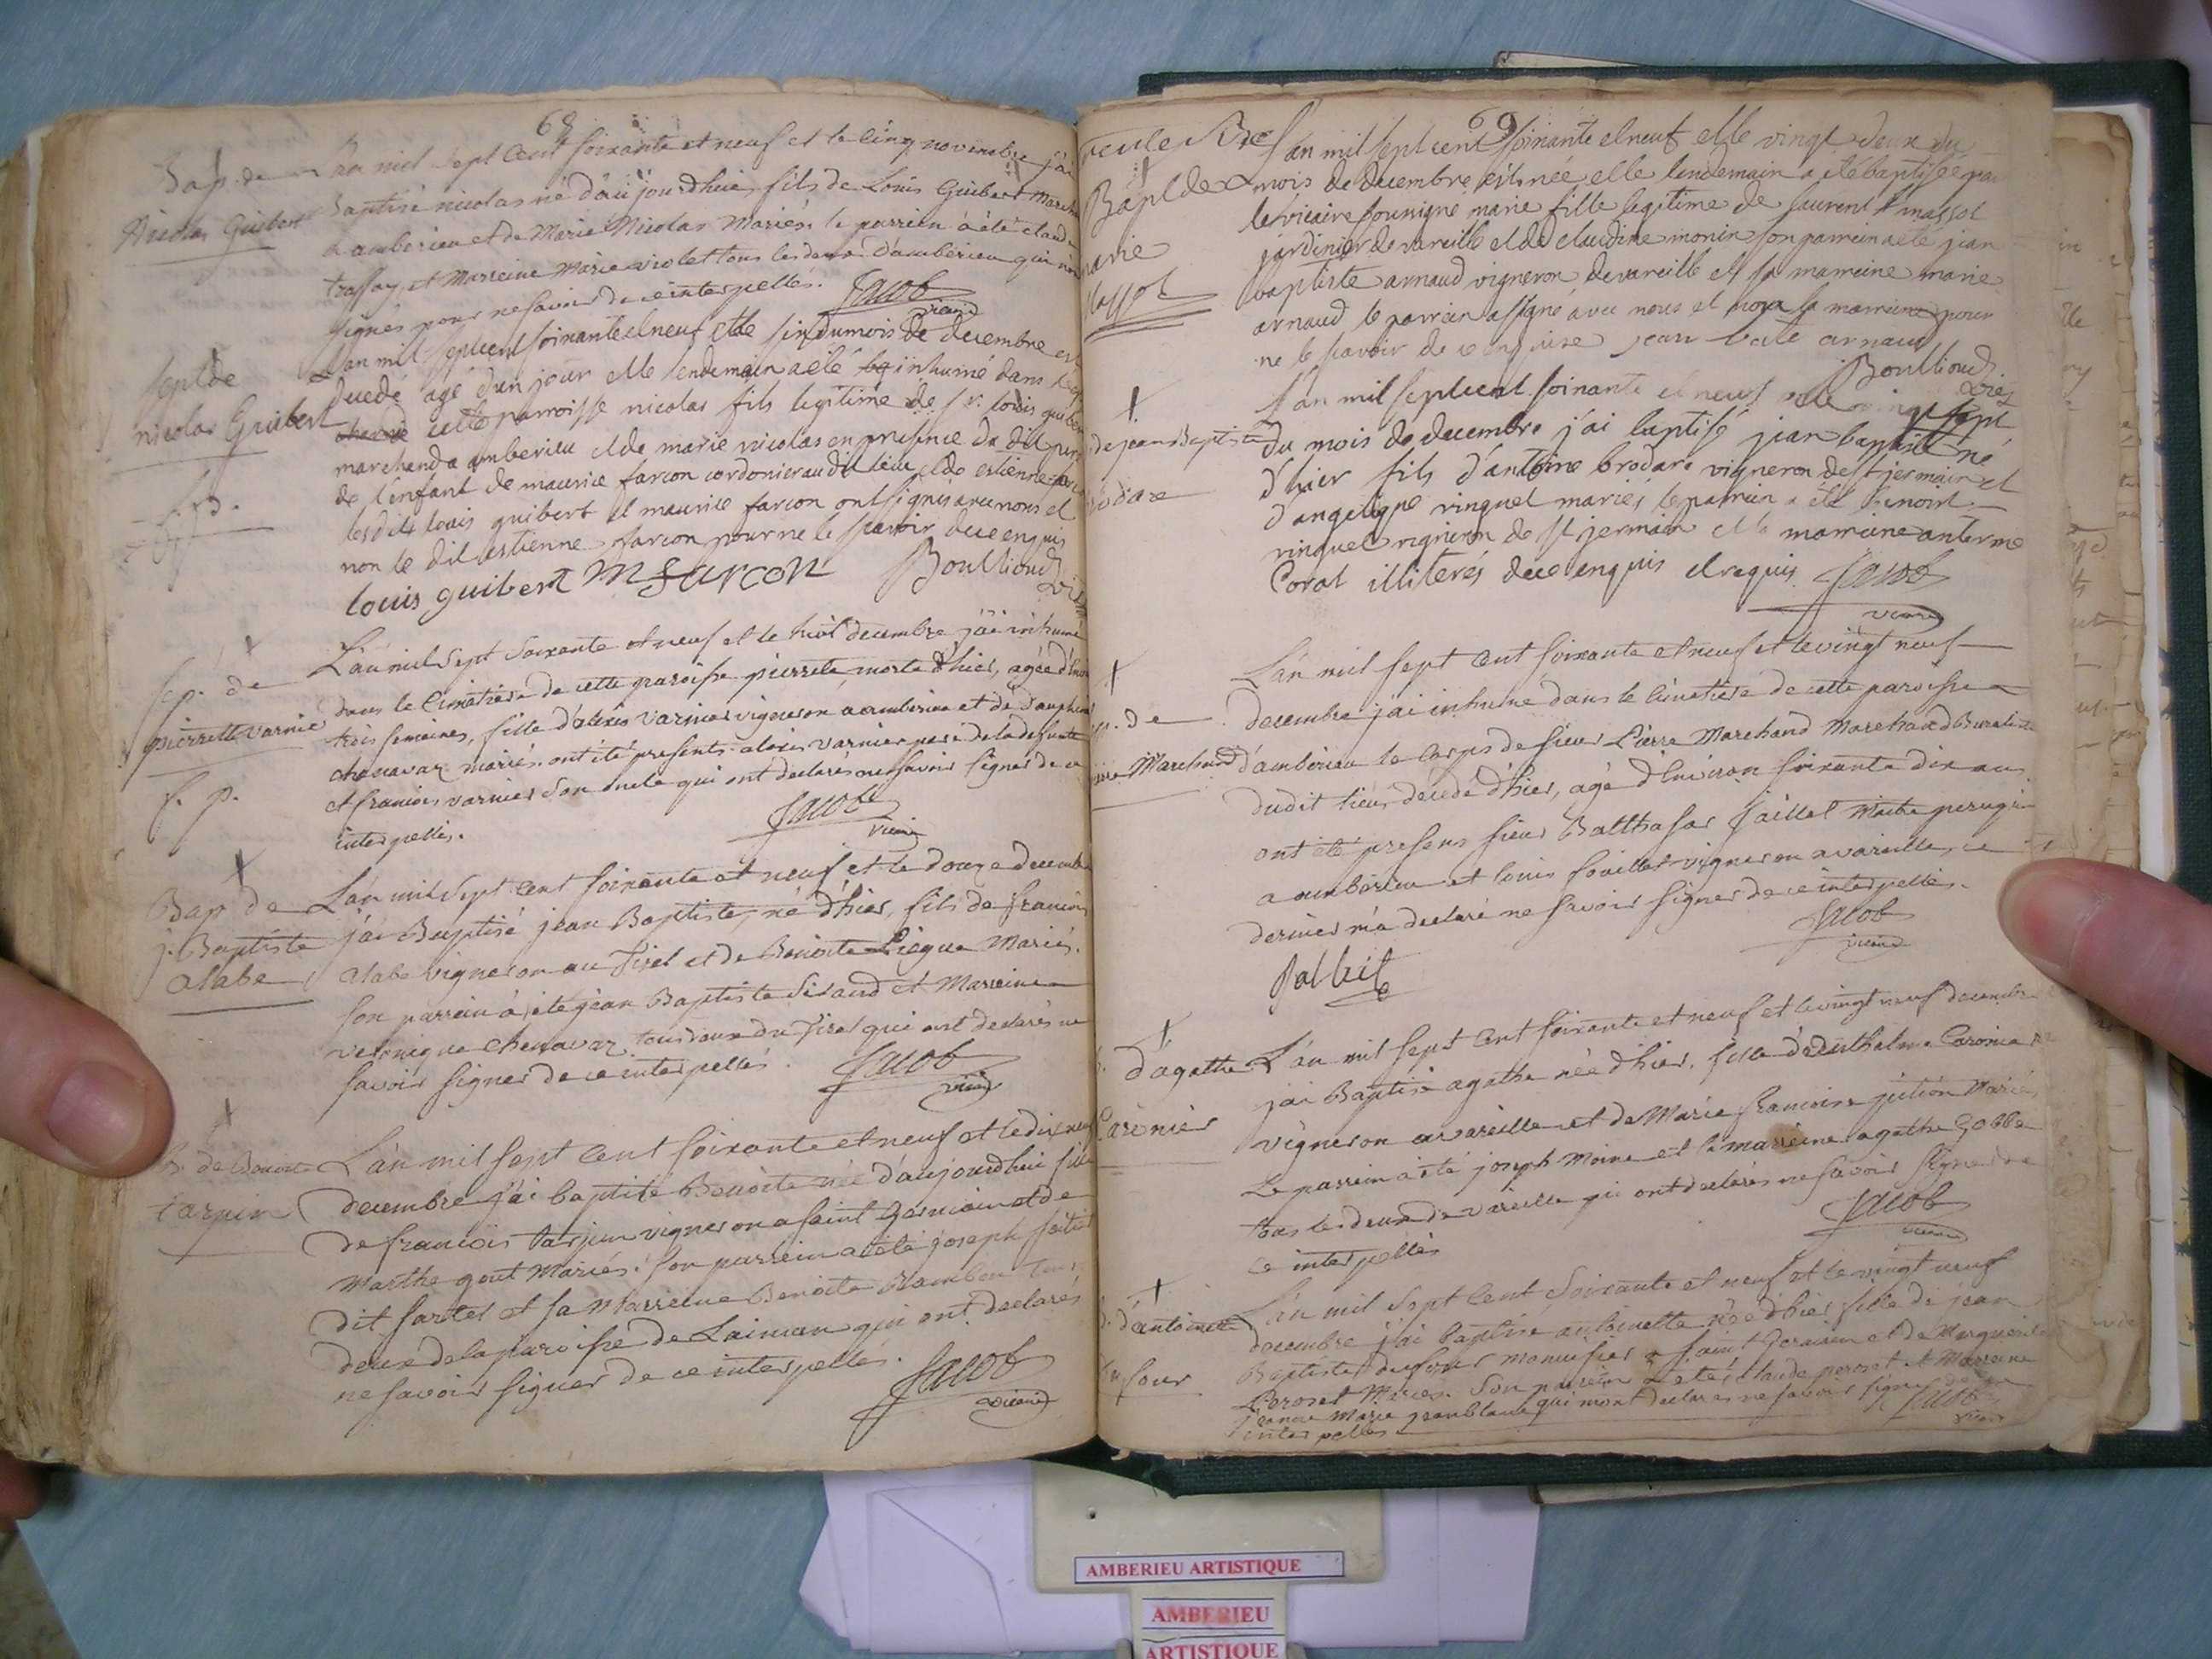 68
Bap. de
Nicolas Guibert
L'an mil sept Cent soixante et neuf et le Cinq novembre j'ai
Baptisé nicolas né d'aujourdhuie, fils de Louis Guibert March
a amberieu et de Marie Nicolas Mariés. le parrein à été claude
et Marreine Marie violet tous les deux d'amberieu qui n'on
signés pour ne savoir de ce interpellés. Jacob
vicaire
Sepult de
nicolas Guibert
L'an mil sept cent soixante et neuf et le six du mois de decembre est
decedé agé d'un jour et le lendemain a été inhumé dans
cette parroisse nicolas fils legitime de sr. louis guibert
marchand a amberieu et de marie nicolas en presence du dit pere
de l'enfant de maurice farcon cordonier au dit lieu et de estienne farcon
les dits louis guibert et maurice farcon ont signés avec nous et
non le dit estienne farcon pour ne le sçavoir de ce enquis
louis guibert M farcon Boullioud
vic
Sep. de
pierrette varnier
f. p.
L'an mil sept soixante et neuf et le huit decembre j'ai inhumé
dans le Cimetiere de cette paroisse pierrette, morte d'hier, agée d'env
trois semaines, fille d'alexis varnier vigneron a amberieu et de Dauphine
chenavaz mariés. ont été presents alexis varnier pere de la defunte
et francois varnier son oncle qui ont declarés ne savoir signer de ce
interpellés.
Jacob
vicaire
Bap de
j. Baptiste
alabe
L'an mil sept Cent soixante et neuf et le douze decembre
j'ai Baptisé jean Baptiste, né d'hier, fils de francois
alabe vigneron au Tiret et de Benoite Picque Mariés.
son parrein à été jean Baptiste Siraud et Marreine
veronique chenavaz tous deux du Tiret qui ont declarés ne
savoir signer de ce interpellés. Jacob
vicaire
B. de Benoite
tarpin
L'an mil sept Cent soixante et neuf et le dix neuf
decembre j'ai baptisé Benoite née d'aujourdhui fille
de francois tarpin vigneron a saint Germain et de
Marthe gout Mariés. son parrein a été joseph
dit sartet et sa Marreine Benoite Rambon tous
deux de la paroisse de Laiman qui ont declarés
ne savoir signer de ce interpellés. Jacob
vicaire
69
Bapt de
marie
Massot
L'an mil sept cent soixante et neuf et le vingt deux du
mois de decembre est née et le lendemain a été baptisée par
le vicaire soussigné marie fille legitime de laurent massot
jardinier de vareille et de claudine monin son parrein a été jean
baptiste arnaud vigneron de vareille et sa marreine marie
arnaud le parrain a signé avec nous et non la marreine pour
ne le sçavoir de ce enquise jean batite arnaud
Boullioud
vic
de jean Baptiste
brodare
L'an mil sept cent soixante et neuf et le vingt sept
du mois de decembre j'ai baptisé jean baptiste né
d'hier fils d'antoine brodare vigneron de st jermain et
d'angeligue vinquet mariés le parrein a été benoit
vinquet vigneron de st jermain et la marreine anterme
Corat illiterés de ce enquis et requis Jacob
vicaire
Sep. de
pierre Marchand
L'an mil sept Cent soixante et neuf et le vingt neuf
decembre j'ai inhumé dans le Cimetiere de cette paroisse
d'amberieu le Corps de sieur Pierre Marchand Marchand Buraliste
dudit lieu, décédé d'hier, agé d'environ soixante dix ans
ont été presens sieur Balthasar Jaillet Maitre peruquier
a amberieu et louis fouillet vigneron a vareille, ce
dernier m'a declaré ne savoir signer de ce interpellés.
Jacob
vicaire
d'agathe
Caronier
L'an mil sept Cent soixante et neuf et le vingt neuf decembre
jai Baptisé agathe née d'hier. fille de Barthelme Caronier
vigneron a vareille et de Marie francoise jution Mariés
Le parrein a été joseph Moine et la marreine agathe Gobbe
tous les deux de vareille qui ont declarés ne savoir signer de
ce interpellés
Jacob
vicaire
B. d'antoinette
Dufour
L'an mil sept Cent Soixante et neuf et le vingt neuf
decembre j'ai baptisé antoinette née d'hier fille de jean
Baptiste dufour menuisier a saint Germain et de Marguerite
Peroset Mariés. Son parrein a été claude peroset et Marreine
jeanne Marie jeanblanc qui m'ont declarés ne savoir signer de ce
interpellés
Jacob
vicaire
AMBERIEU ARTISTIQUE
AMBERIEU
ARTISTIQUE